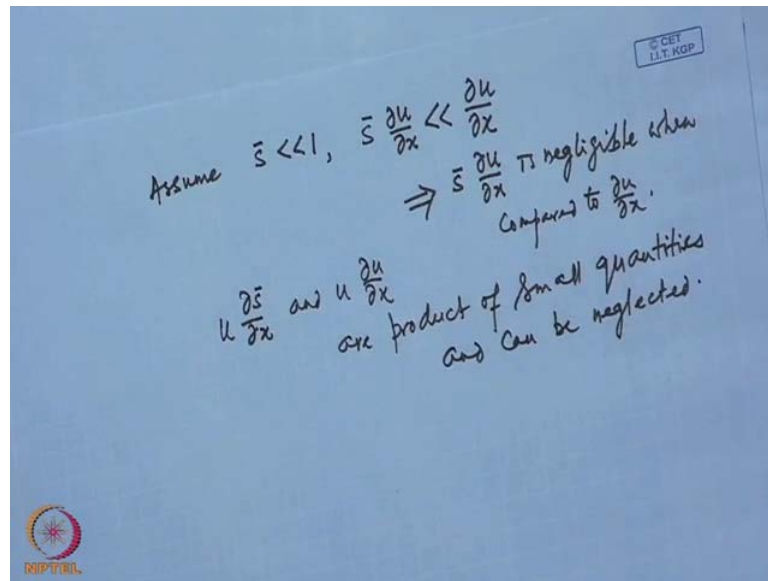 © CET
I.I.T. KGP
Assume s̄ <<1, s̄ ∂u/∂x << ∂u/∂x
⇒ s̄ ∂u/∂x is negligible when
compared to ∂u/∂x.
u ∂s̄/∂x and u ∂u/∂x
are product of small quantities
and can be neglected.
NPTEL